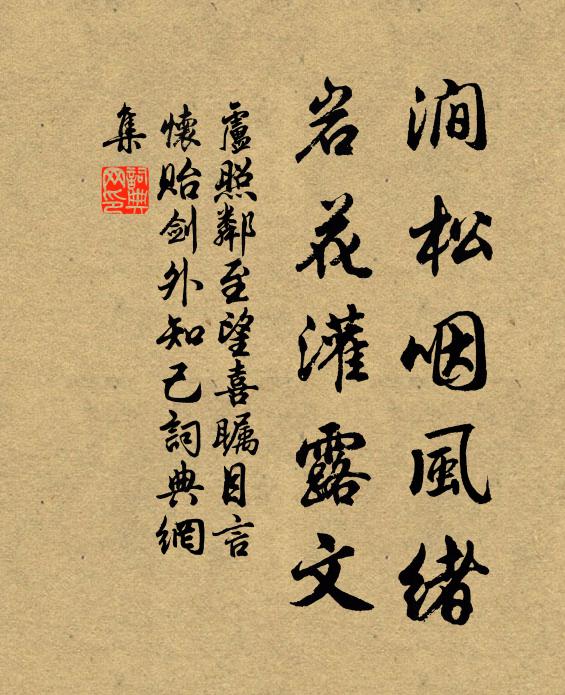 澗松咽風緒
岩花灌露文
盧照鄰至望喜矚目言
懷貽劍外知己詞典網
集
詞典
网印